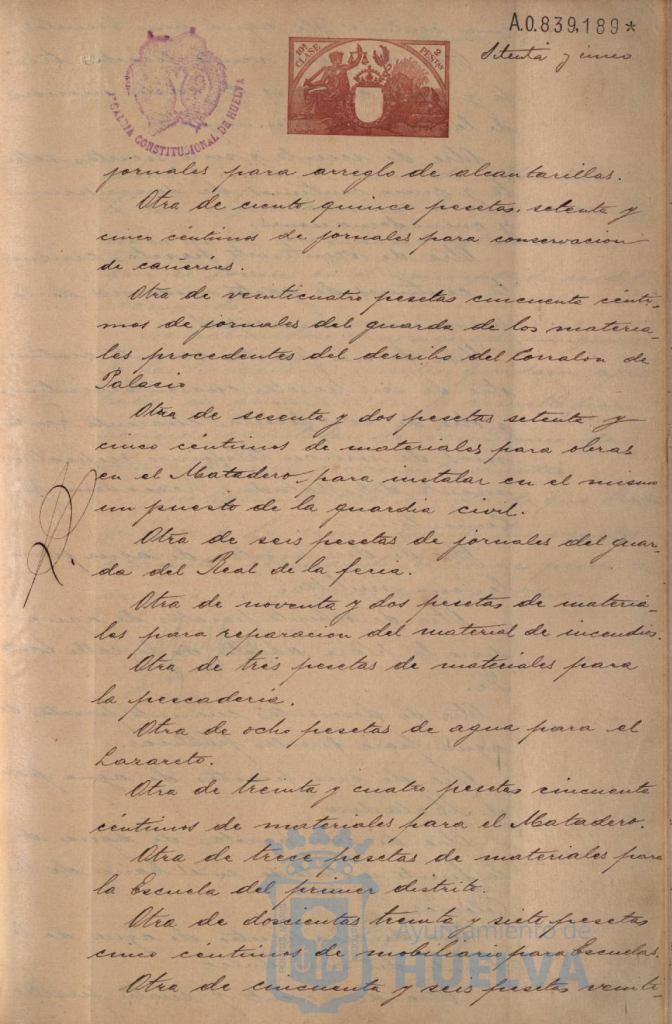 A.0.839.189*
Setenta y cinco
10ª CLASE
2 PESETAS
ALCALDIA CONSTITUCIONAL DE HUELVA
jornales para arreglo de alcantarillas.
Otra de ciento quince pesetas, setenta y
cinco céntimos de jornales para conservacion
de cañerias.
Otra de veinticuatro pesetas cincuenta cénti-
mos de jornales del guarda de los materia-
les procedentes del derribo del Corralon de
Palacio
Otra de sesenta y dos pesetas setenta y
cinco céntimos de materiales para obras
en el Matadero, para instalar en el mismo
un puesto de la guardia civil.
Otra de seis pesetas de jornales del guar-
da del Real de la feria.
Otra de noventa y dos pesetas de materia-
les para reparacion del material de incendios.
Otra de tres pesetas de materiales para
la pescaderia.
Otra de ocho pesetas de agua para el
Lazareto.
Otra de treinta y cuatro pesetas cincuenta
céntimos de materiales para el Matadero.
Otra de trece pesetas de materiales para
la Escuela del primer distrito.
Otra de doscientas treinta y siete pesetas
cinco céntimos de mobiliario para Escuelas.
Otra de cincuenta y seis pesetas veinti-
Ayuntamiento de
HUELVA